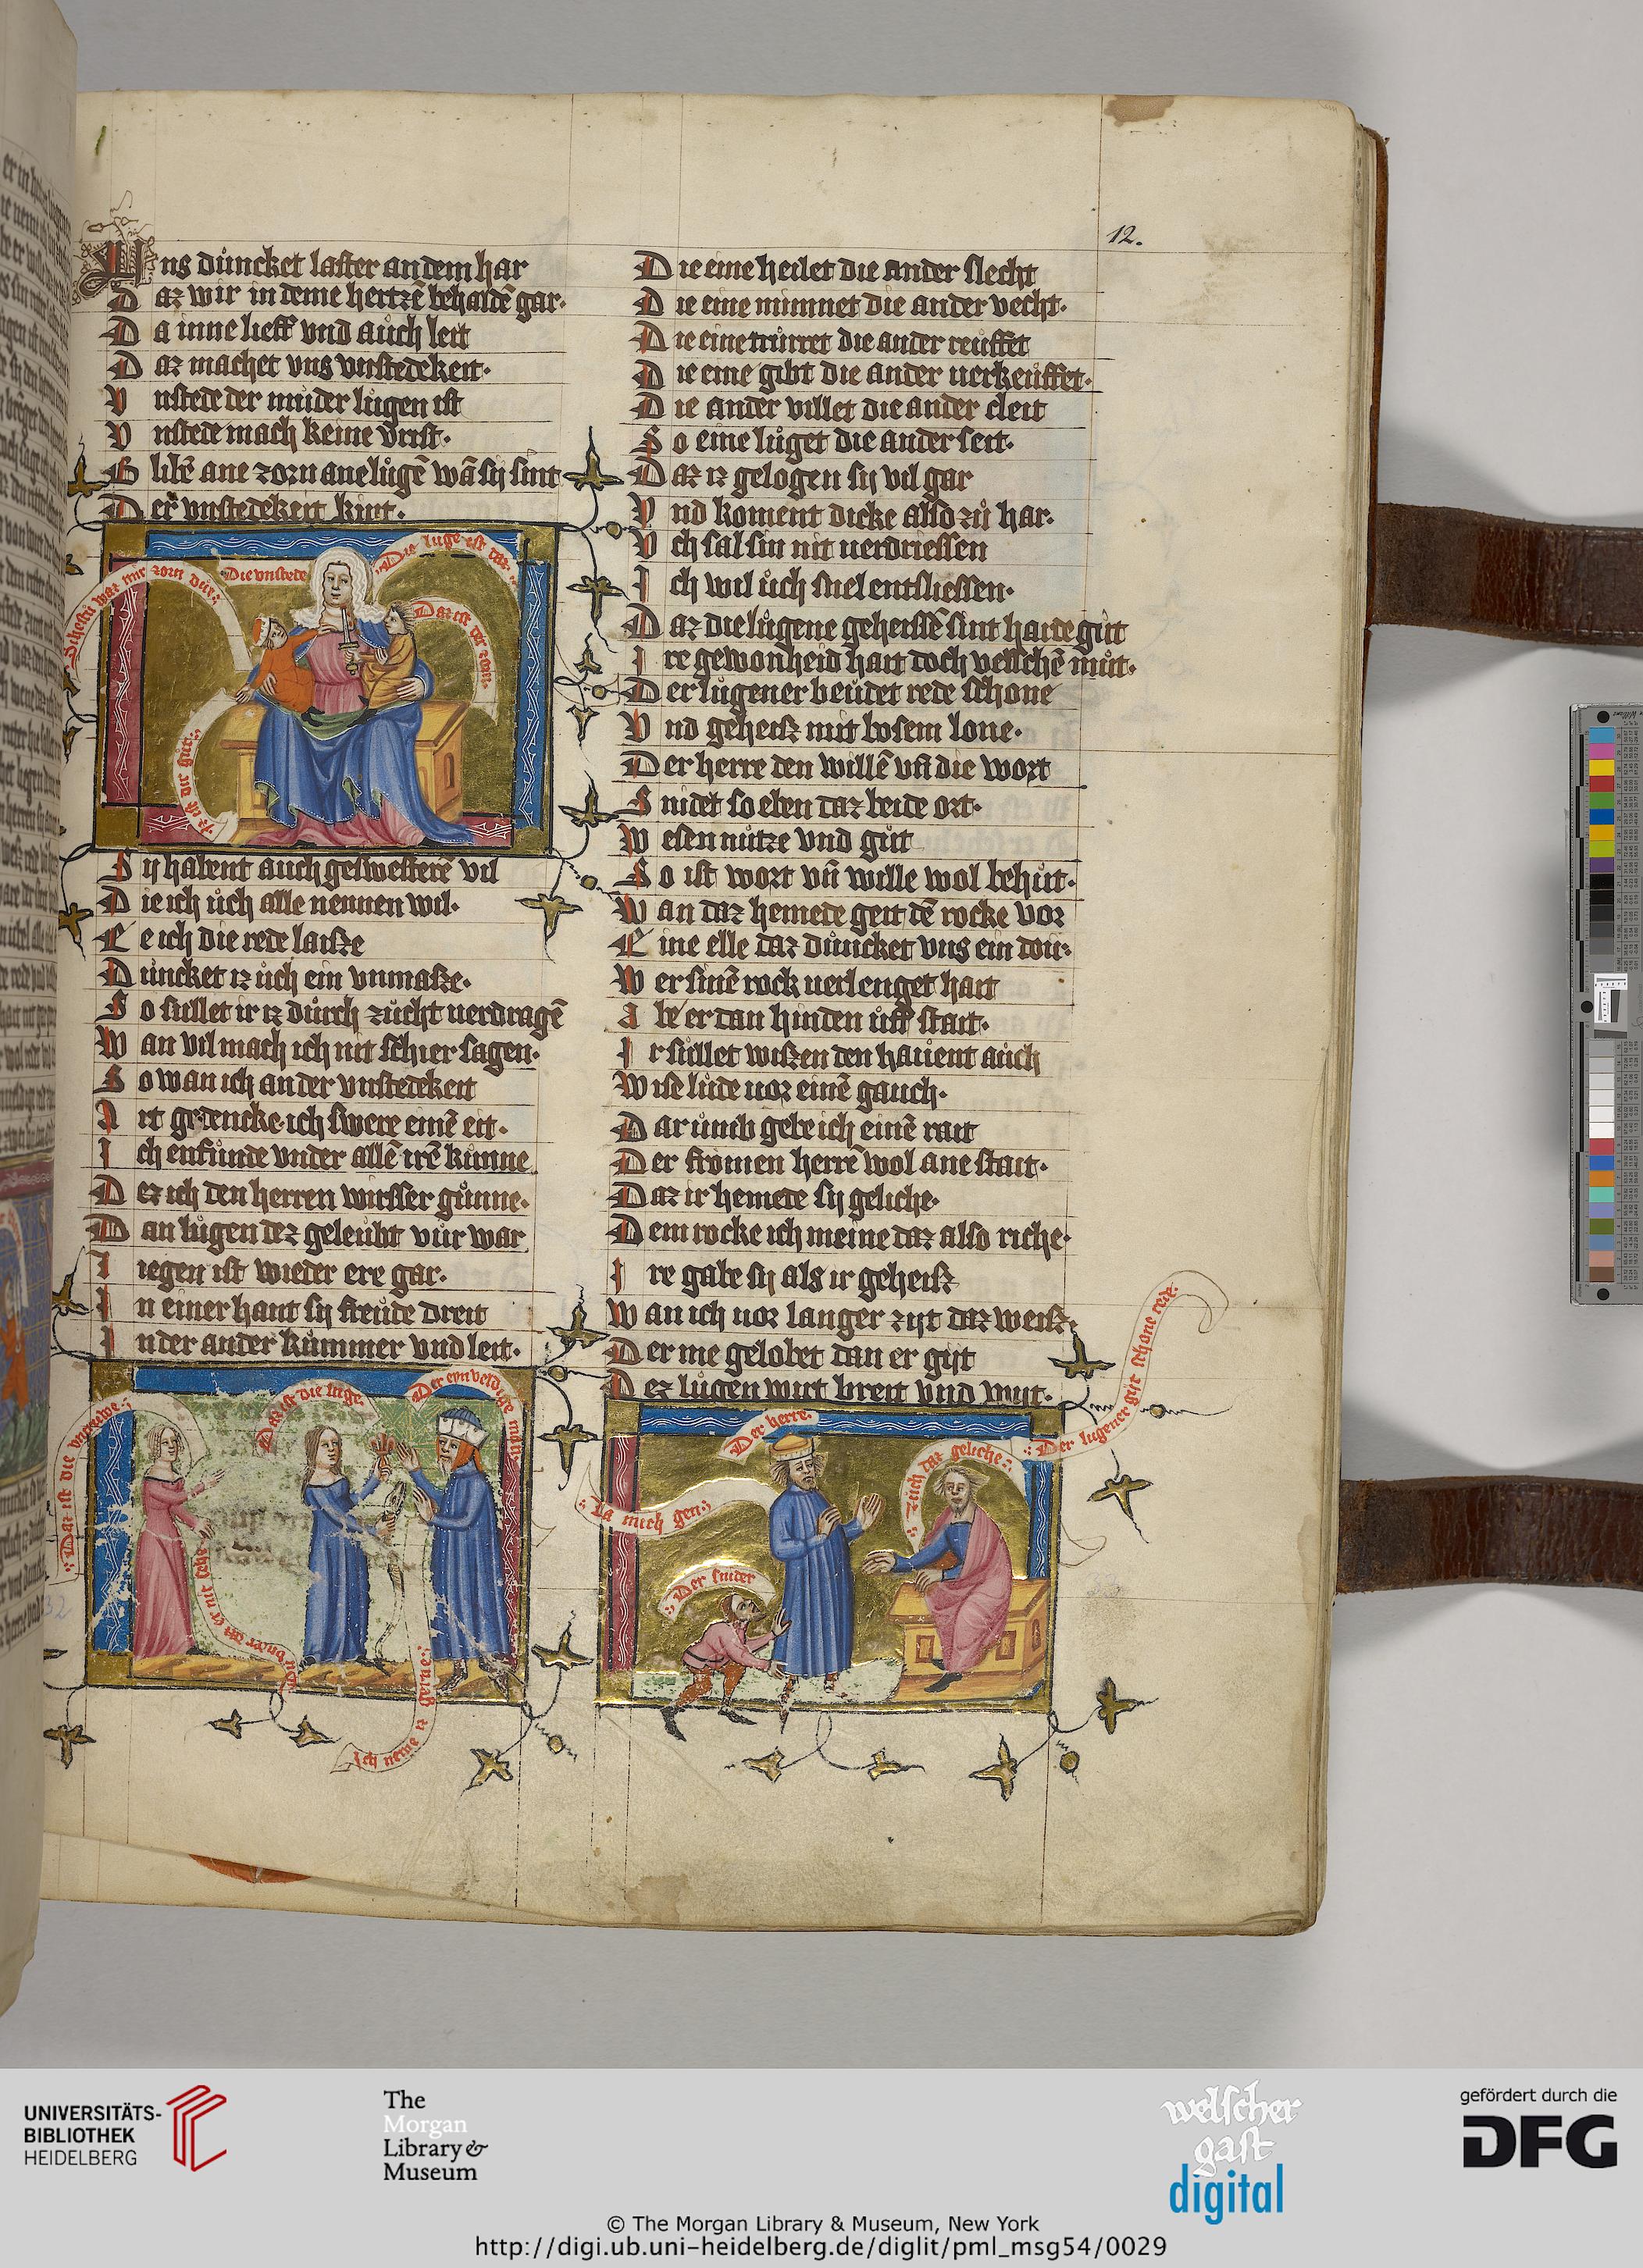 12.
Vns důncket laster an dem har
Daz wir in deme hertzē behaldē gar·
Da inne lieff vnd aůch leit
Daz machet vns vnstedekeit·
Vnstede der můder lůgen ist
Vnstede mach keine vrist·
Blibē ane zorn ane lůgē wā sij sint
Der vnstedekeit kint·
Die vnstede
Die luge ist daz
Daz ist der zorn·
Sij habent auch geswesterē vil
Die ich ůch alle nennen wil·
Ee ich die rede laisze
Důncket iz ůch ein vnmasze·
So sullet ir iz důrch zůcht uerdragē
Wan vil mach ich nit schier sagen·
So wan ich an der vnstedekeit
Art gedencke·ich swere einē eit·
Ich enfůnde vnder allē irē kůnne
Dez ich den herren wirsser gůnne·
Dan lůgen dez geleůbt vůr war
Liegen ist wieder ere gar·
In einer hant sij freůde dreit
In der ander kůmmer vnd leit·
Daz ist die vntruwe·
Daz ist die luge
Der eynveldige
Ich neme iz gerne·
Die eine heilet die ander slecht
Die eine minnet die ander vecht·
Die eine trůrret die ander reůffet
Die eine gibt die ander uerkeůffet·
Die ander villet die ander cleit
So eine lůget die ander seit·
Daz iz gelogen sij vil gar
Vnd koment dicke also zů har·
Vch sal sin nit uerdriessen
Ich wil ůch snel entsliessen·
Daz die lůgene geheissē sint harte gůt
Ire gewonheid hait doch velschē můt·
Der lůgener beůdet rede schone
Vnd geheisz mit bosem lone·
Der herre den willē vn̄ die wort
Snidet so eben daz beide ort·
Wesen nůtze vnd gůt
So ist wort vn̄ wille wol behůt·
Wan daz hemede geit dē rocke vor
Eine elle daz důncket vns ein dor·
Wer sinē rock uerlenget hait
Abe er dan hinden ůff stait·
Ir sůllet wiszen den hauent aůch
Wise lůde uor einē gauch·
Dar ůmb gebe ich einē rait
Der fromen herrē wol ane stait·
Daz ir hemete sij geliche·
Dem rocke ich meine daz also riche·
Ire gabe sij als ir geheisz
Wan ich uor langer zijt daz weisz·
Der me gelobet dan er gijt
Dez lůgen wirt breit vnd wijt·
Der herre·
La mich gen·
Der snider
zuch daz geliche·
Der lugener gijt schone rede·
UNIVERSITÄTS-
BIBLIOTHEK
HEIDELBERG
The
Morgan
Library &
Museum
welscher
gast
digital
gefördert durch die
DFG
© The Morgan Library & Museum, New York
http://digi.ub.uni-heidelberg.de/diglit/pml_msg54/0029